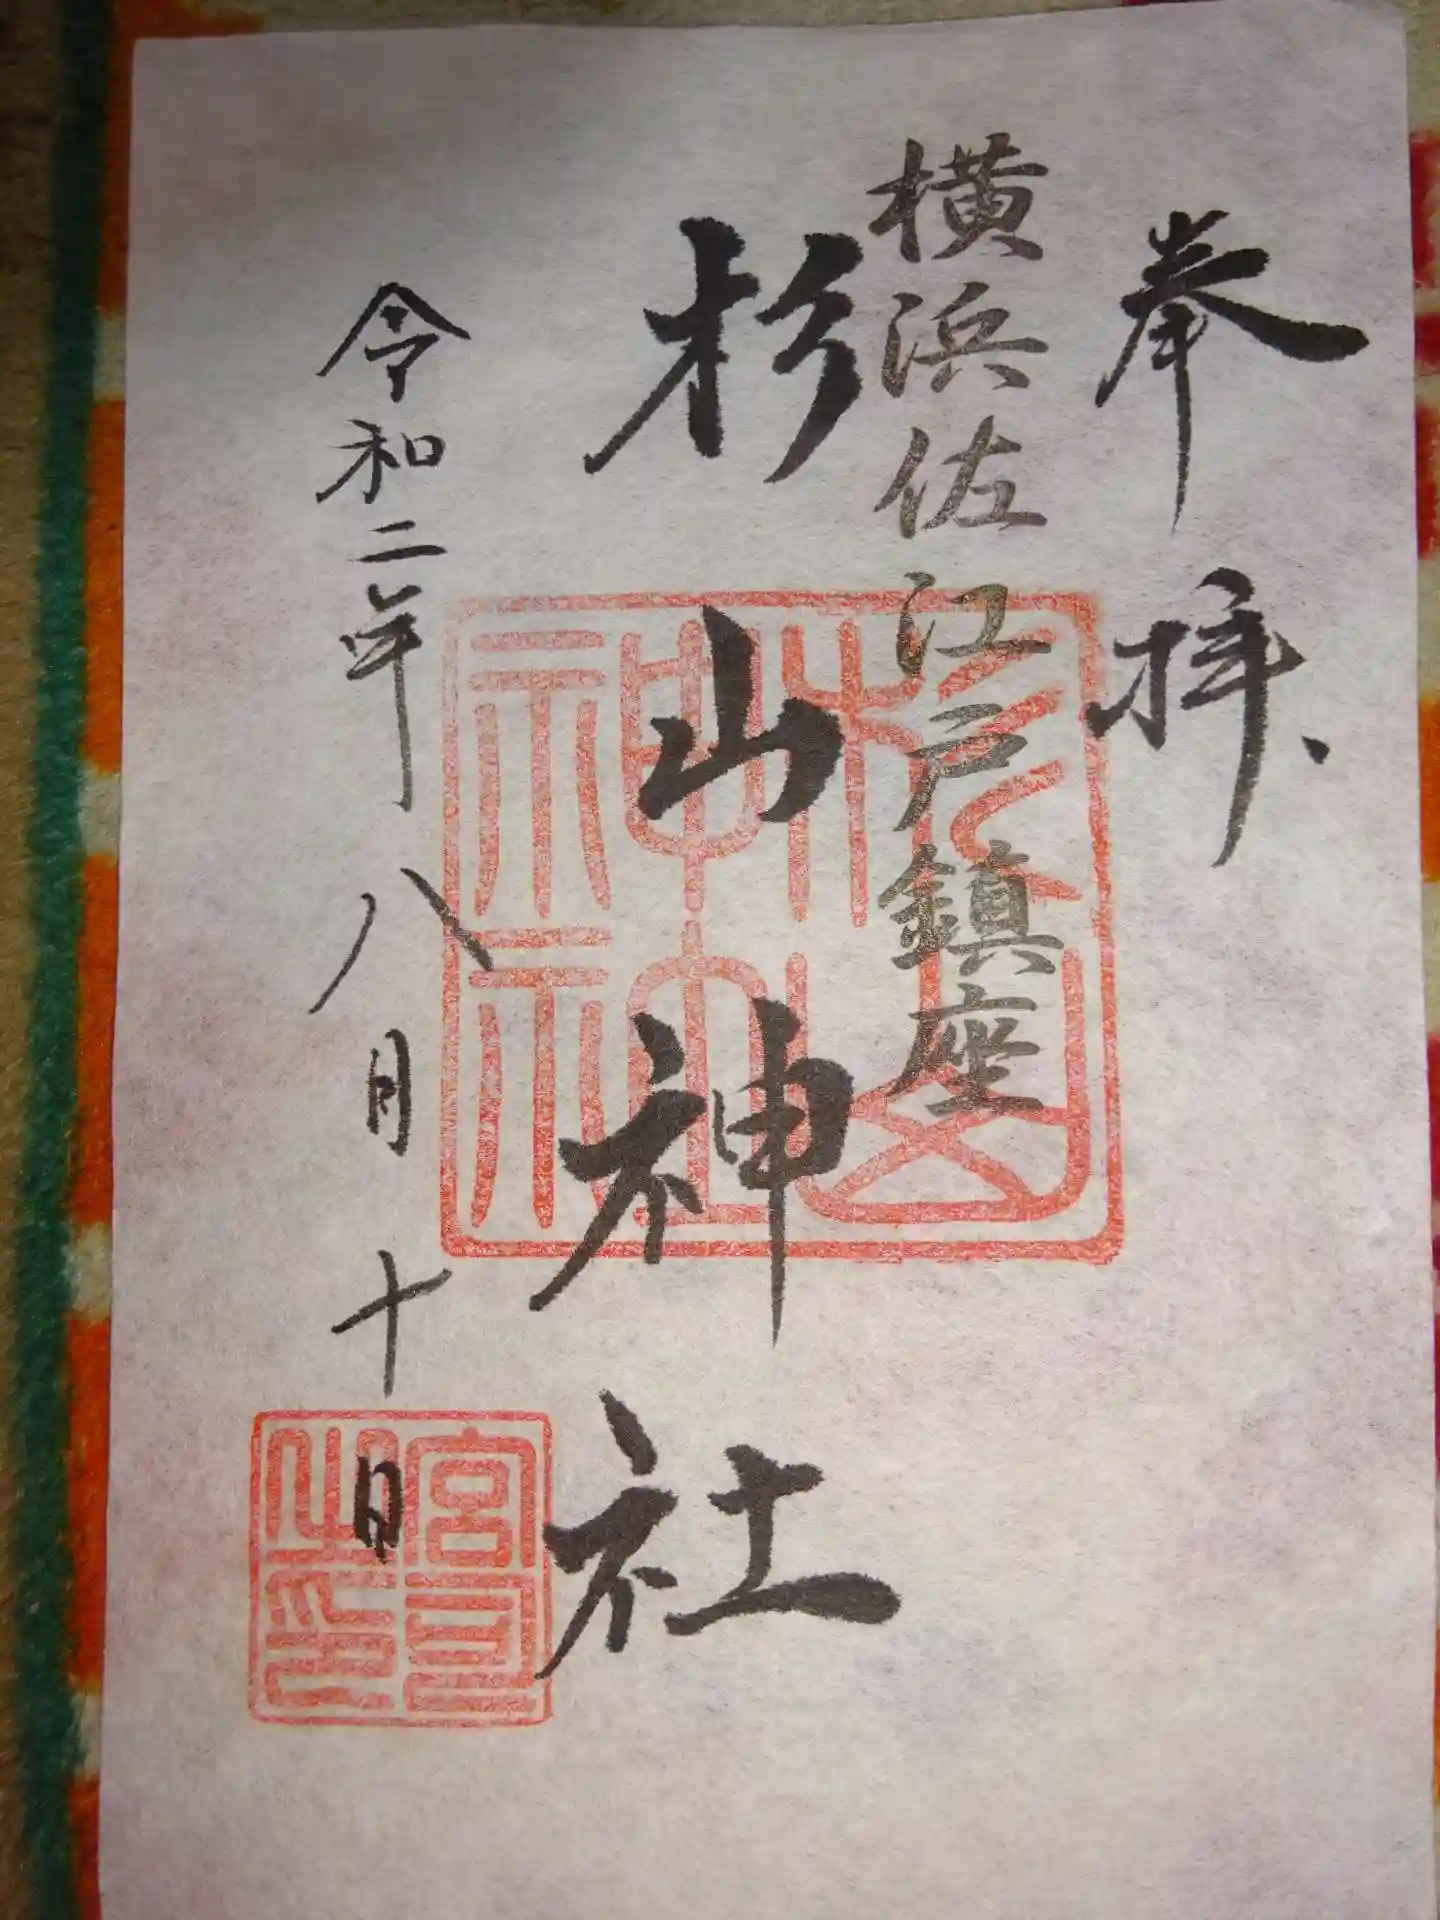 奉拝
横浜佐江戸鎮座
杉山神社
令和二年八月十日
杉山
神社
宮司
之印